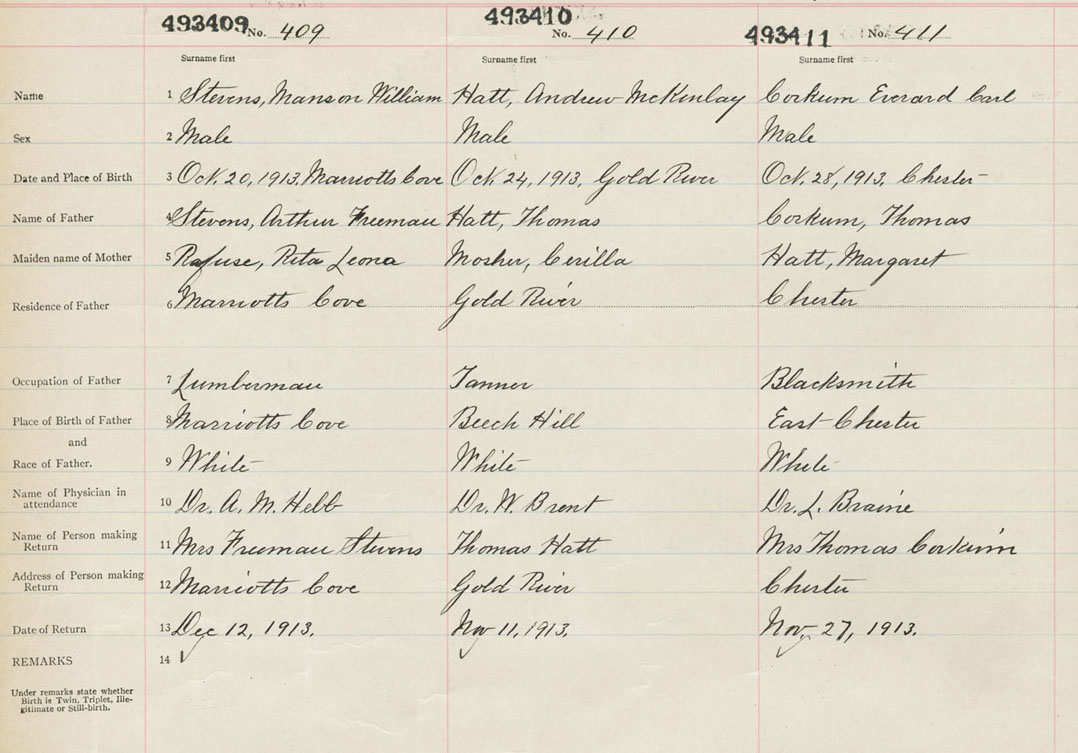 493409 No. 409 493410 No. 410 493411 No. 411
Surname first Surname first Surname first
Name 1 Stevens, Manson William Hatt, Andrew McKinlay Corkum Everard Carl
Sex 2 Male Male Male
Date and Place of Birth 3 Oct. 20, 1913, Marriotts Cove Oct. 24, 1913, Gold River Oct. 28, 1913, Chester
Name of Father 4 Stevens, Arthur Freeman Hatt, Thomas Corkum, Thomas
Maiden name of Mother 5 Rafuse, Rita Leona Mosher, Cerilla Hatt, Margaret
Residence of Father 6 Marriotts Cove Gold River Chester
Occupation of Father 7 Lumberman Tanner Blacksmith
Place of Birth of Father 8 Marriotts Cove Beech Hill East Chester
and
Race of Father. 9 White White White
Name of Physician in
attendance 10 Dr. A. M. Hebb Dr. W. Brent Dr. L. Braine
Name of Person making
Return 11 Mrs Freeman Stevens Thomas Hatt Mrs Thomas Corkum
Address of Person making
Return 12 Marriotts Cove Gold River Chester
Date of Return 13 Dec 12, 1913. Nov 11, 1913. Nov. 27, 1913.
REMARKS 14
Under remarks state whether
Birth is Twin, Triplet, Ille-
gitimate or Still-birth.